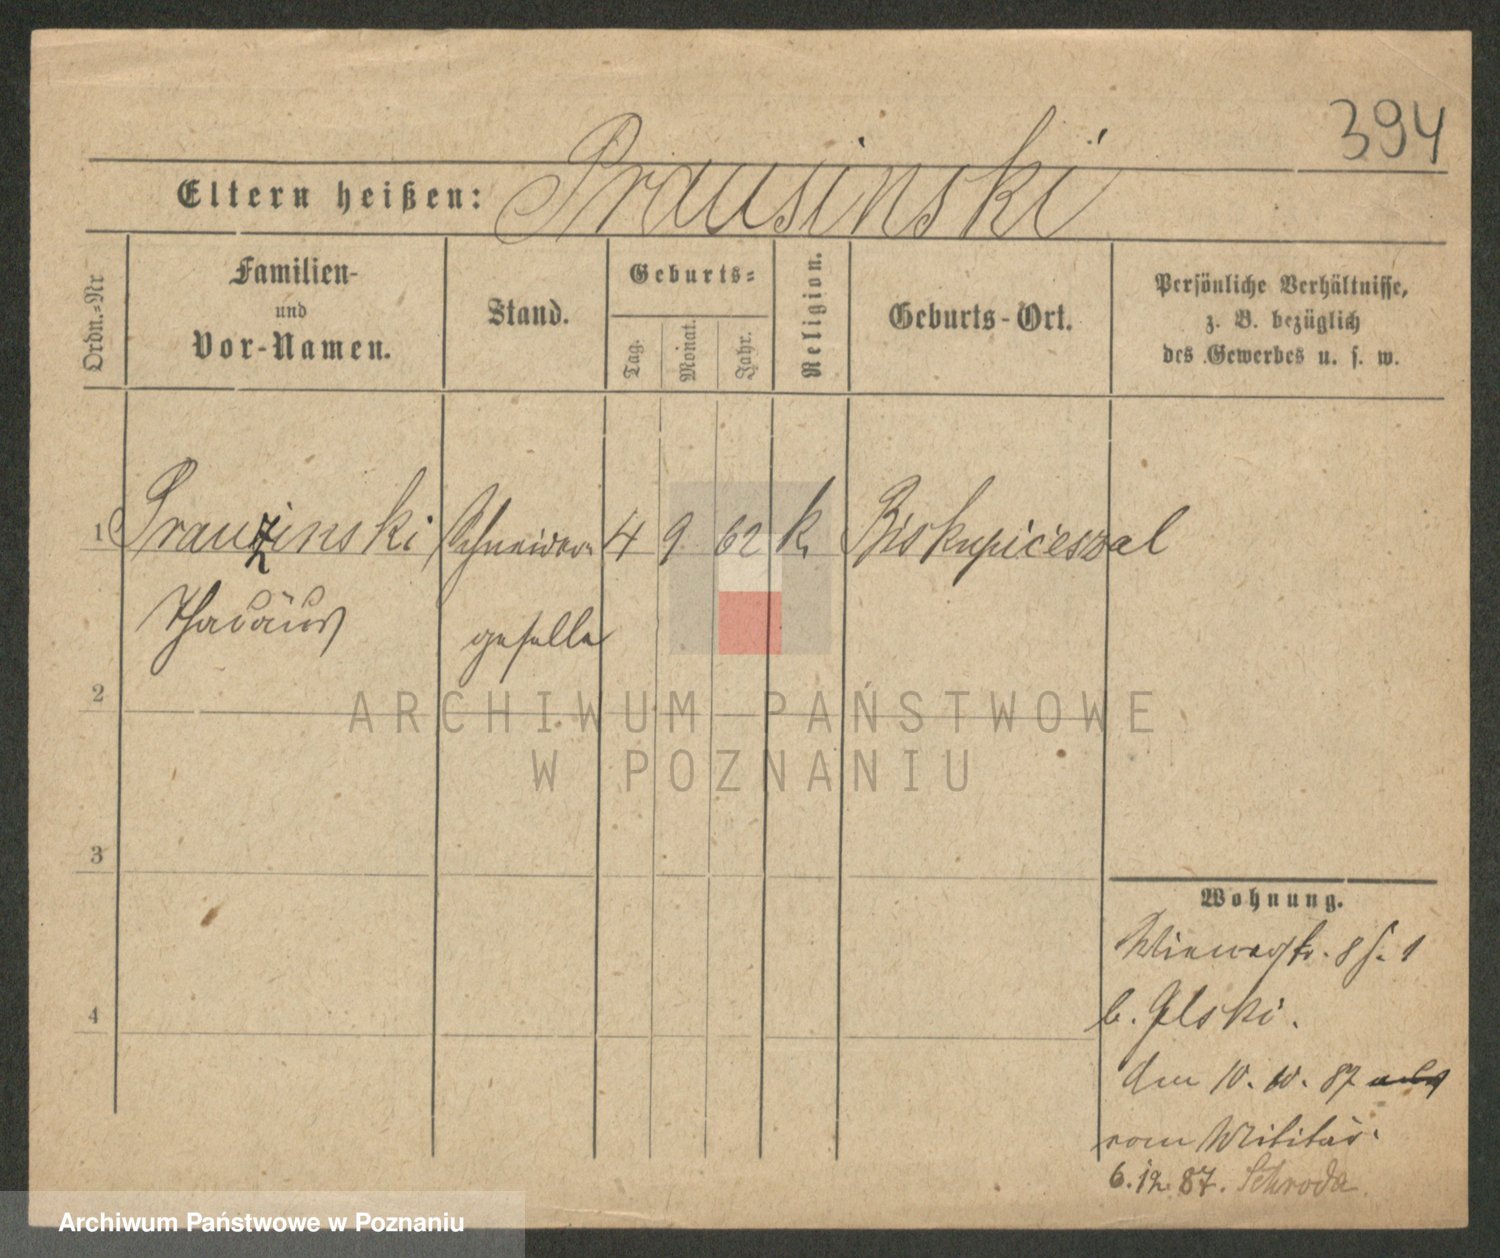 394
Eltern heißen: Prausinski
Ordn.-Nr
Familien-
und
Vor-Namen.
Stand.
Geburts-
Tag.
Monat.
Jahr.
Religion.
Geburts-Ort.
Persönliche Verhältnisse,
z. B. bezüglich
des Gewerbes u. s. w.
1 Prauzinski Schneider- 4 9 62 k. Biskupiceszal
Thadäus geselle
2
ARCHIWUM PAŃSTWOWE
W POZNANIU
3
Wohnung.
8 1
b.
4
den 10. 10. 87
vom Militär.
6.12.87. Schroda
Archiwum Państwowe w Poznaniu